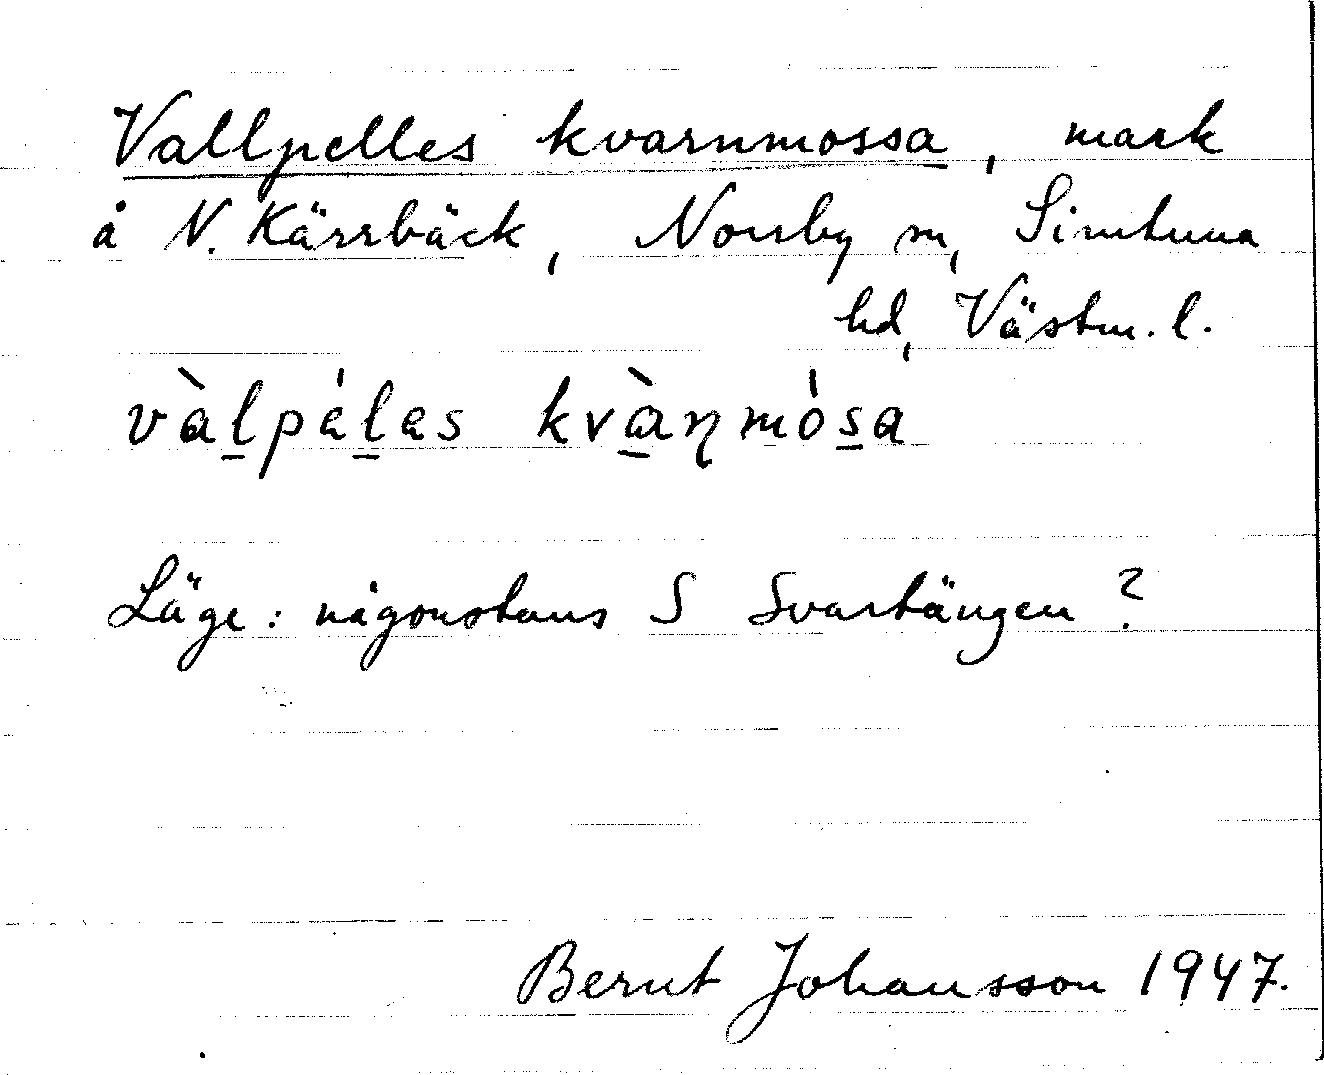 Vallpelles kvarnmossa, mark
å N. Kärrbäck, Norrby sn, Simtuna
hd, Västm. l.
vàl̲pél̲es kvà̲ɳmós̲a
Läge: någonstans S Svartängen?
Bernt Johansson 1947.